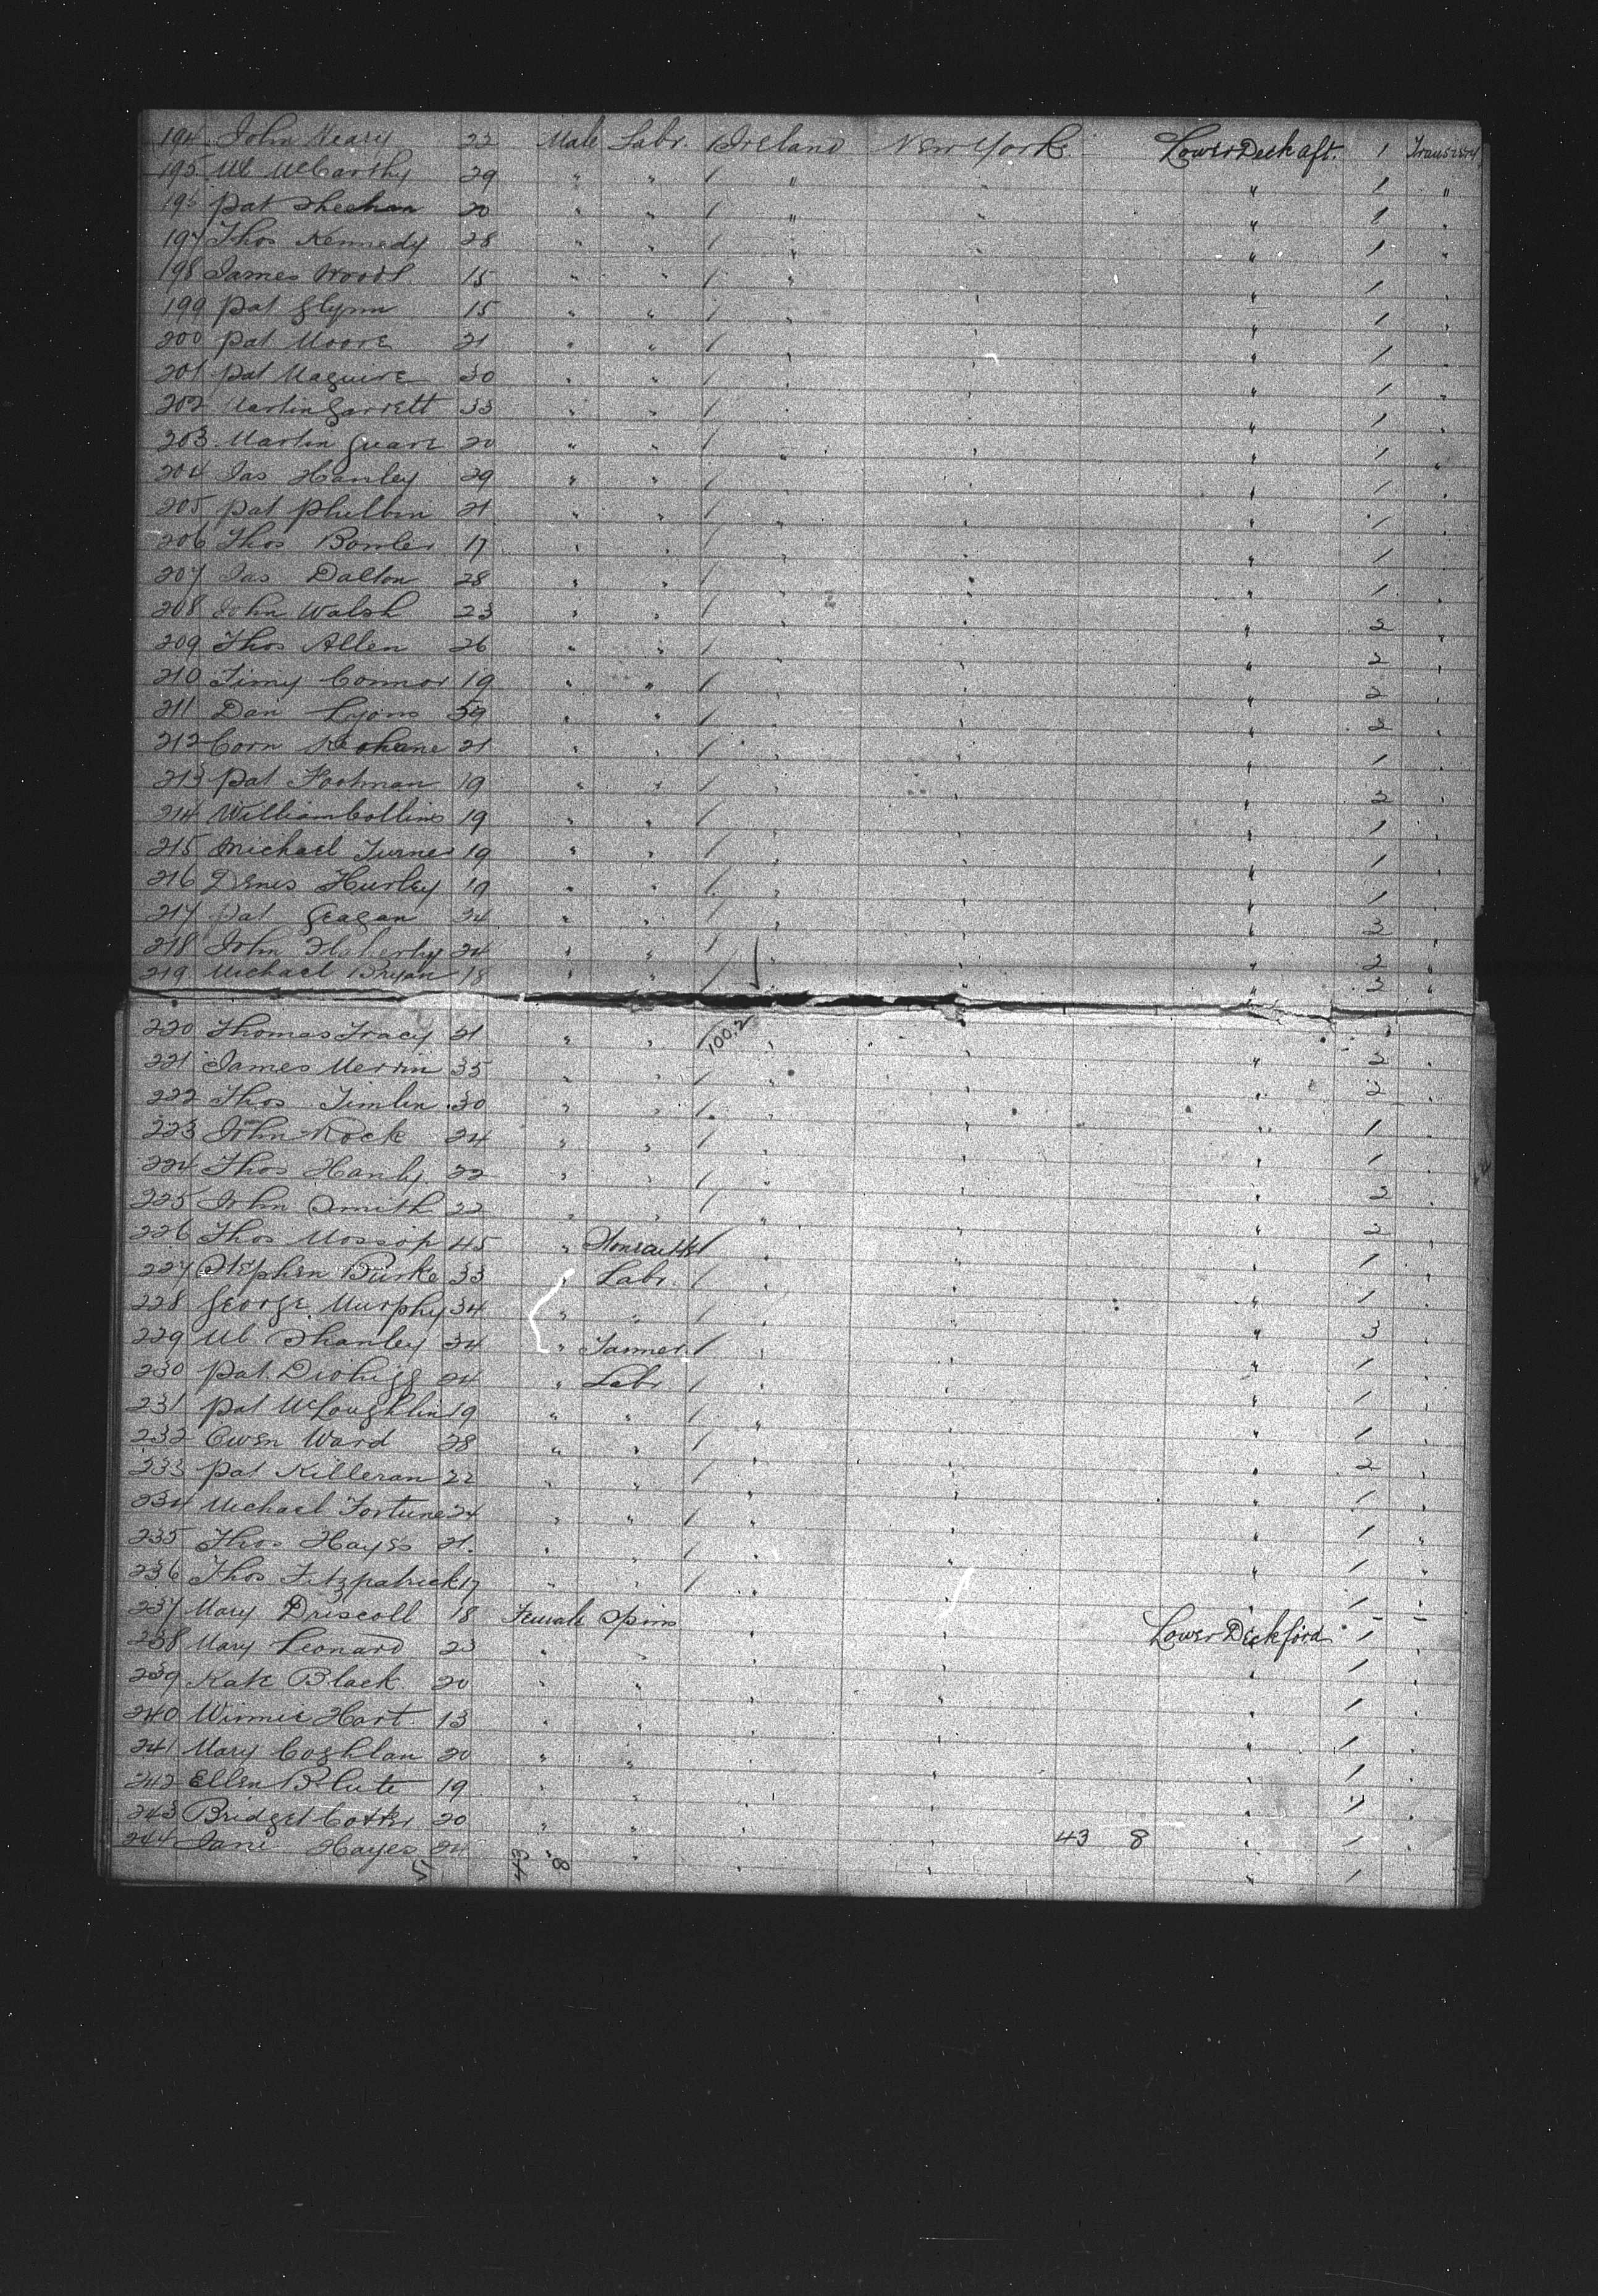 194 John Keary 22 Male Labr. 1 Ireland New York Lower Deck aft. 1
195 Ml McCarthy 29 " " 1 " " " 1 "
196 Pat Sheehan 20 " " 1 " " " 1 "
197 Thos Kennedy 28 " " 1 " " 1 "
198 James Wood 15 " " 1 " " 1 "
199 Pat Glynn 15 " " 1 " " " 1 "
200 Pat Moore 21 " " 1 " " 1 "
201 Pat Maguire 30 " " 1 " " 1 "
202 Martin Garrett 33 " " 1 " " 1 "
203 Martin 20 " " 1 " " " 1 "
204 Jas Hanley 29 " " 1 " " " 1 "
205 Pat Philbin 21 " " 1 " " " 1 "
206 Thos Bowler 17 " " 1 " " " 1 "
207 Jas Dalton 28 " " 1 " " " 1 "
208 John Walsh 23 " " 1 " " " 2 "
209 Thos Allen 26 " " 1 " " " 2 "
210 Timy Connor 19 " " 1 " " " 2 "
211 Dan Lyons 39 " " 1 " " " 2 "
212 Corn Keohane 21 " " 1 " " " 1 "
213 Pat 19 " " 1 " " " 2 "
214 William Collins 19 " " 1 " " " 1 "
215 Michael Turner 19 " " 1 " " " 1 "
216 Denis Hurley 19 " " 1 " " " 1 "
217 Pat Geagan 34 " " 1 " " " 2 "
218 John Flaherty 24 " " 1 " " " 2 "
219 Michael Bryan 18 " " 1 " " " 2 "
220 Thomas Tracy 21 " " 1 100.2 " " "
221 James Merrin 35 " " 1 " " " 2 "
222 Thos Timlin 30 " " 1 " " " 2 "
223 John Rock 24 " " 1 " " " 1 "
224 Thos Hanly 22 " " 1 " " " 1 "
225 John Smith 22 " " 1 " " " 2 "
226 Thos Mossop 45 " 1 " " " 2 "
227 Stephen Burke 33 " Labr. 1 " " " 1 "
228 George Murphy 34 " " 1 " " " 1 "
229 Ml. Shanley 34 " Tanner 1 " " " 3 "
230 Pat. Drohigg 24 " Labr 1 " " " 1 "
231 Pat McLoughlin 19 " " 1 " " " 1 "
232 Owen Ward 28 " " 1 " " " 1 "
233 Pat Killeran 22 " " 1 " " " 2 "
234 Michael Fortune 24 " " 1 " " " 1 "
235 Thos Hayes 21. " " 1 " " " 1 "
236 Thos Fitzpatrick 17 " " 1 " " " 1 "
237 Mary Driscoll 18 Female Spins " " Lower Deck ford 1 "
238 Mary Leonard 23 " " " " " 1 "
239 Kate Black 20 " " " " " 1 "
240 Winnie Hart 13 " " " " " 1 "
241 Mary Coghlan 20 " " " " " 1 "
242 Ellen Blute 19 " " " " " 1 "
243 Bridget Cotter 20 " " " " " 1 "
244 Jane Hayes 24 " " " 43 8 " 1 "
43 8